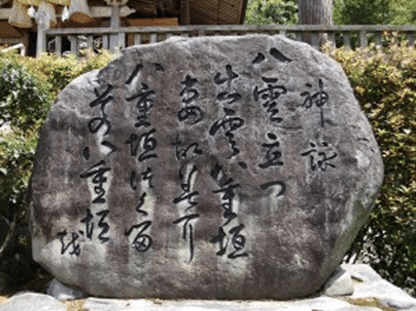 神詠
八雲立つ
出雲八重垣
妻故美尓
八重垣作る
其の八重垣
越